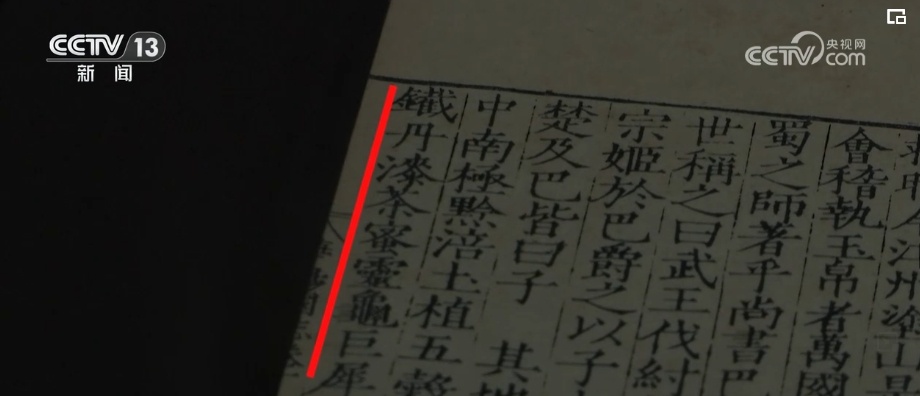 CCTV 13
新闻
CCTV com
央视网
今江州塗山是
會稽執玉帛者萬國
蜀之師著乎尚書巴
世稱之曰武王伐紂
宗姬於巴爵之以子
楚及巴皆曰子 其地
中南極黔涪土植五穀
鐵丹漆茶蜜靈龜巨犀